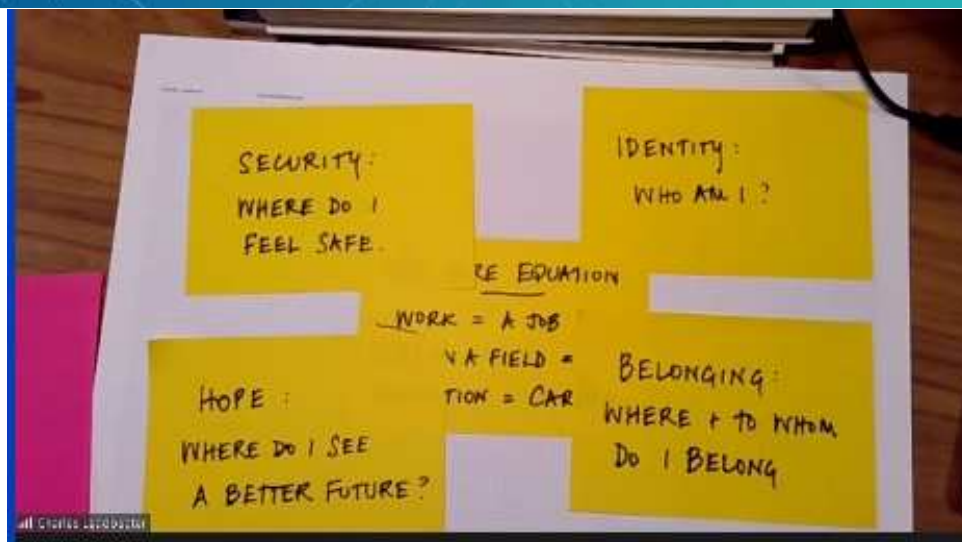 SECURITY:
WHERE DO I
FEEL SAFE.
IDENTITY:
WHO AM I?
RE EQUATION
WORK = A JOB
N A FIELD =
TION = CAR
HOPE:
WHERE DO I SEE
A BETTER FUTURE?
BELONGING:
WHERE + TO WHOM
DO I BELONG
Charles